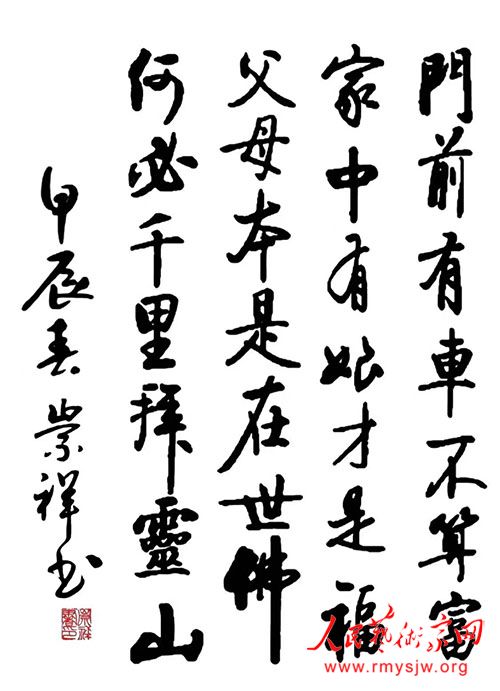 門前有車不算富
家中有娘才是福
父母本是在世佛
何必千里拜靈山
甲辰春 崇祥书
人民艺術家网
www.rmysjw.org